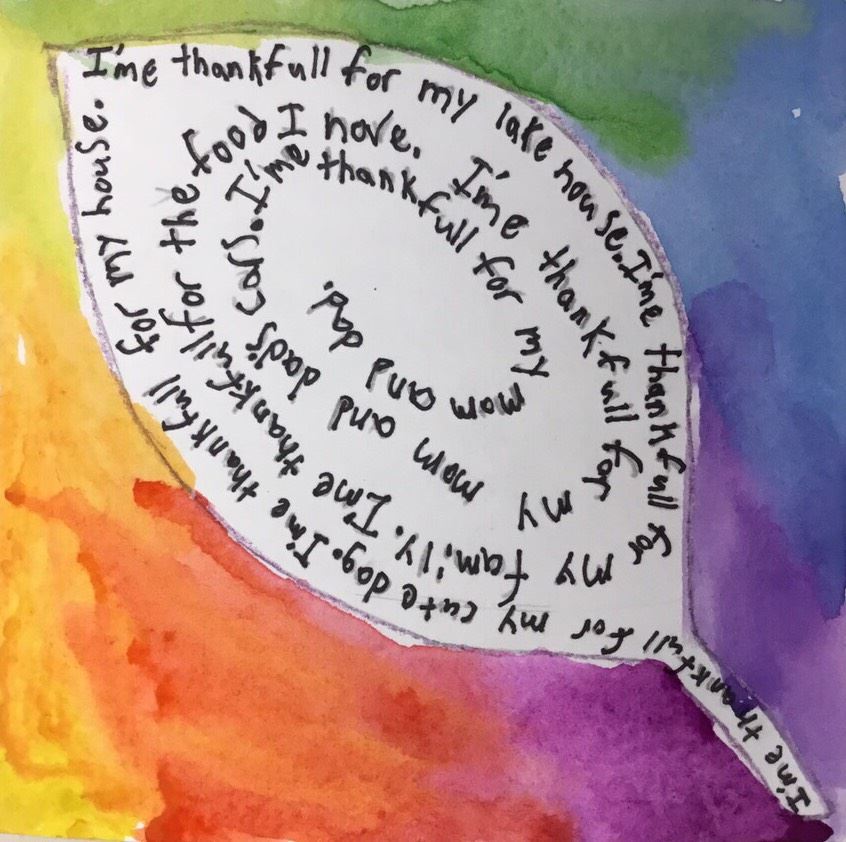 I'me thankfull for my cute dog. I'me thankfull for my house. I'me thankfull for my lake house. I'me thankfull for my family. I'me thankfull for the food I have. I'me thankfull for my mom and dad's cars. I'me thankfull for my mom and dad.